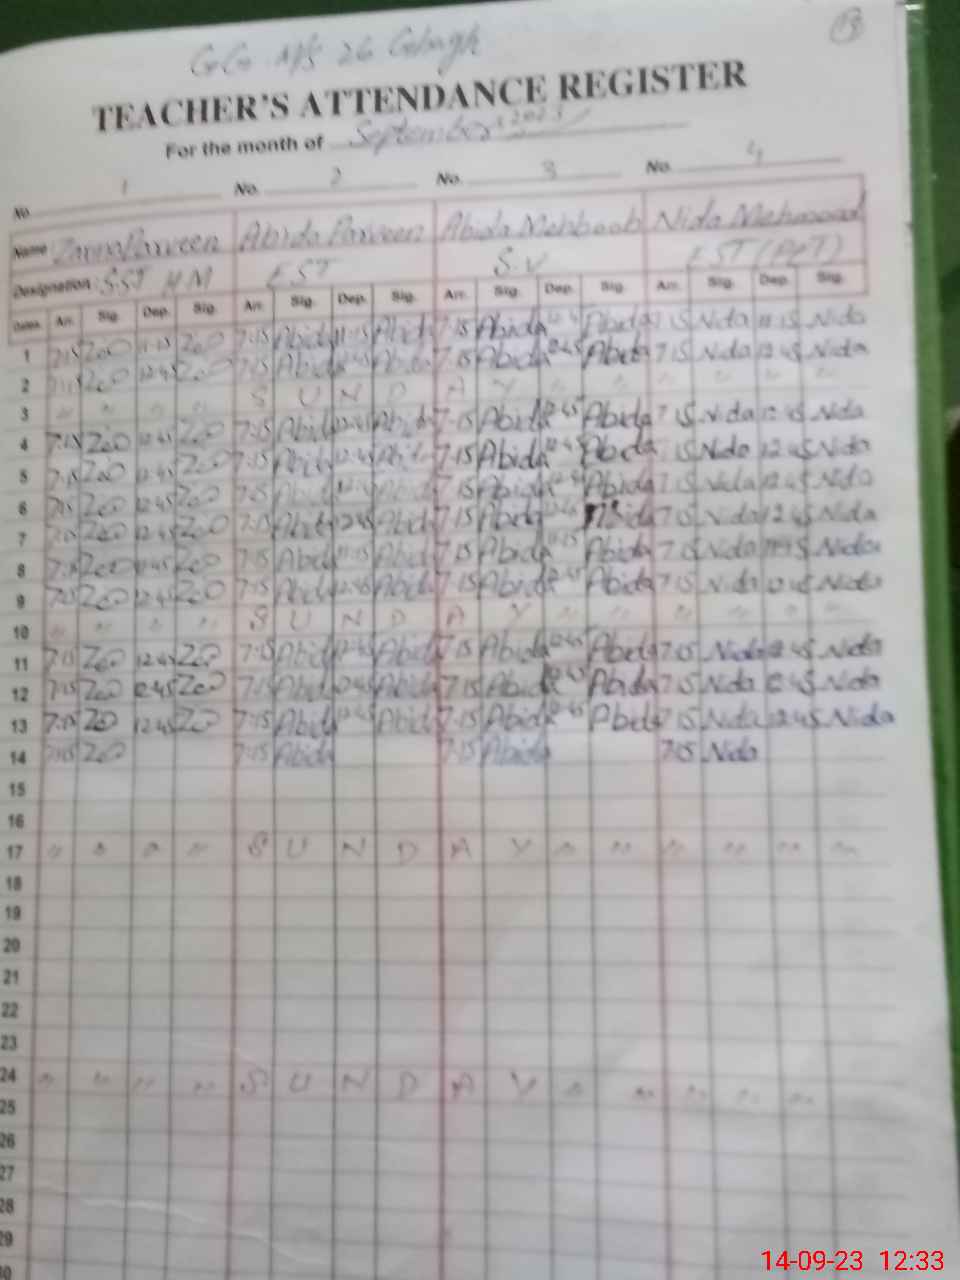 TEACHER'S ATTENDANCE REGISTER
For the month of September, 2023
No. 1 No. 2 No. 3 No. 4
Name Parveen Abida Parveen Abida Mehboob Nida Mehmood
Designation: SST HM EST S.V EST (PET)
Dates. Arr. Sig. Dep. Sig. Arr. Sig. Dep. Sig. Arr. Sig. Dep. Sig. Arr. Sig. Dep. Sig.
1 7:15 11:15 7:15 Abida 11:15 Abida 7:15 Abida Abida 7:15 Nida 11:15 Nida
2 7:15 12:45 7:15 Abida 12:45 Abida 7:15 Abida 12:45 Abida 7:15 Nida 12:45 Nida
3 " " " " S U N D A Y " " " " " "
4 7:15 12:45 7:15 Abida 12:45 Abida 7:15 Abida 12:45 Abida 7:15 Nida 12:45 Nida
5 7:15 12:45 7:15 Abida 12:45 Abida 7:15 Abida 12:45 Abida 7:15 Nida 12:45 Nida
6 7:15 12:45 7:15 Abida Abida 7:15 Abida Abida 7:15 Nida 12:45 Nida
7 7:15 12:45 7:15 Abida 12:45 Abida 7:15 Abida 12:45 Abida 7:15 Nida 12:45 Nida
8 7:15 7:15 Abida 11:15 Abida 7:15 Abida 11:15 Abida 7:15 Nida 11:15 Nida
9 7:15 12:45 7:15 Abida 12:45 Abida 7:15 Abida 12:45 Abida 7:15 Nida 12:45 Nida
10 " " " " S U N D A Y " " " " " "
11 7:15 12:45 7:15 Abida 12:45 Abida 7:15 Abida 12:45 Abida 7:15 Nida 12:45 Nida
12 7:15 12:45 7:15 Abida 12:45 Abida 7:15 Abida 12:45 Abida 7:15 Nida 12:45 Nida
13 7:15 12:45 7:15 Abida 12:45 Abida 7:15 Abida 12:45 Abida 7:15 Nida 12:45 Nida
14 7:15 7:15 Abida 7:15 Abida 7:15 Nida
15
16
17 " " " " S U N D A Y " " " " " "
18
19
20
21
22
23
24 " " " " S U N D A Y " " " " "
25
26
27
28
29
30
14-09-23 12:33